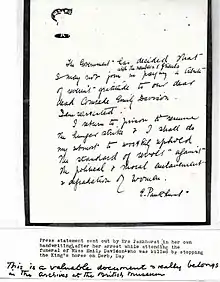 The Government has decided that
I may not join in paying a tribute
of reverent gratitude to our dear
dead Comrade Emily Davison.
I return to prison to resume
the hunger strike & I shall do
my utmost to worthily uphold
the standard of revolt against
the political & moral enslavement
& degradation of women.
E. Pankhurst
Press statement sent out by Mrs Pankhurst in her own
handwriting, after her arrest while attending the
funeral of Miss Emily Davidson who was killed by stopping
the King's horse on Derby Day
This is a valuable document & really belongs
in the archives at the British Museum